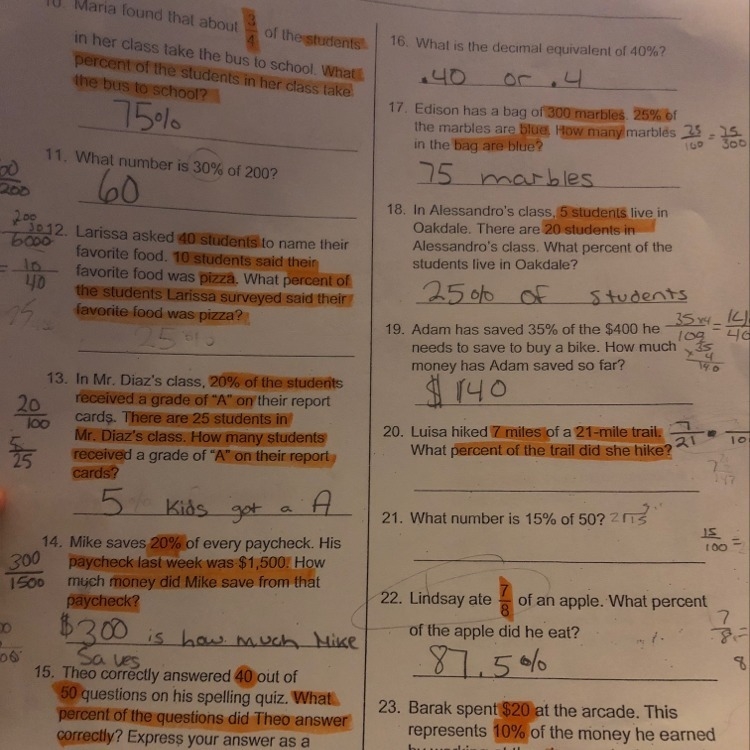 10. Maria found that about 3/4 of the students
in her class take the bus to school. What
percent of the students in her class take
the bus to school?
75%
11. What number is 30% of 200?
60
200
12. Larissa asked 40 students to name their
favorite food. 10 students said their
favorite food was pizza. What percent of
the students Larissa surveyed said their
favorite food was pizza?
= 10/40
25%
13. In Mr. Diaz's class, 20% of the students
received a grade of "A" on their report
cards. There are 25 students in
Mr. Diaz's class. How many students
received a grade of "A" on their report
cards?
20/100
5/25
5 Kids got a A
14. Mike saves 20% of every paycheck. His
paycheck last week was $1,500. How
much money did Mike save from that
paycheck?
300/1500
$300 is how much Mike
Saves
15. Theo correctly answered 40 out of
50 questions on his spelling quiz. What
percent of the questions did Theo answer
correctly? Express your answer as a
16. What is the decimal equivalent of 40%?
.40 or .4
17. Edison has a bag of 300 marbles. 25% of
the marbles are blue. How many marbles
in the bag are blue?
25/100 = 75/300
75 marbles
18. In Alessandro's class, 5 students live in
Oakdale. There are 20 students in
Alessandro's class. What percent of the
students live in Oakdale?
25% of students
19. Adam has saved 35% of the $400 he
needs to save to buy a bike. How much
money has Adam saved so far?
35
4
140
$140
20. Luisa hiked 7 miles of a 21-mile trail.
What percent of the trail did she hike?
7/21
21. What number is 15% of 50?
15/100 =
22. Lindsay ate 7/8 of an apple. What percent
of the apple did he eat?
7/8 =
87.5%
23. Barak spent $20 at the arcade. This
represents 10% of the money he earned